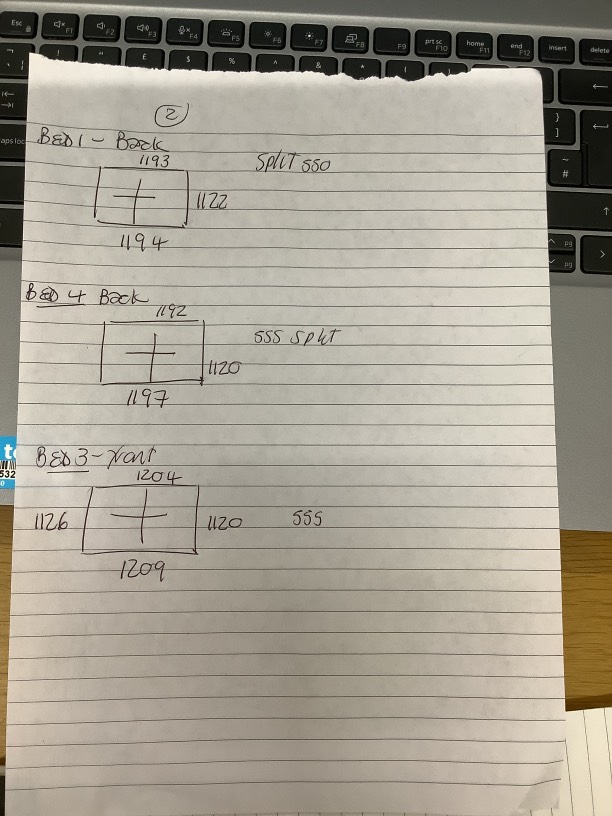 2
BED 1 - Back
1193
Split 550
1122
1194
BED 4 Back
1192
555 Split
1120
1197
BED 3 - Front
1204
1126
1120
555
1209
Esc
F1
F2
F3
F4
F5
F6
F7
F8
F9
prt sc
F10
home
F11
end
F12
insert
delete
532